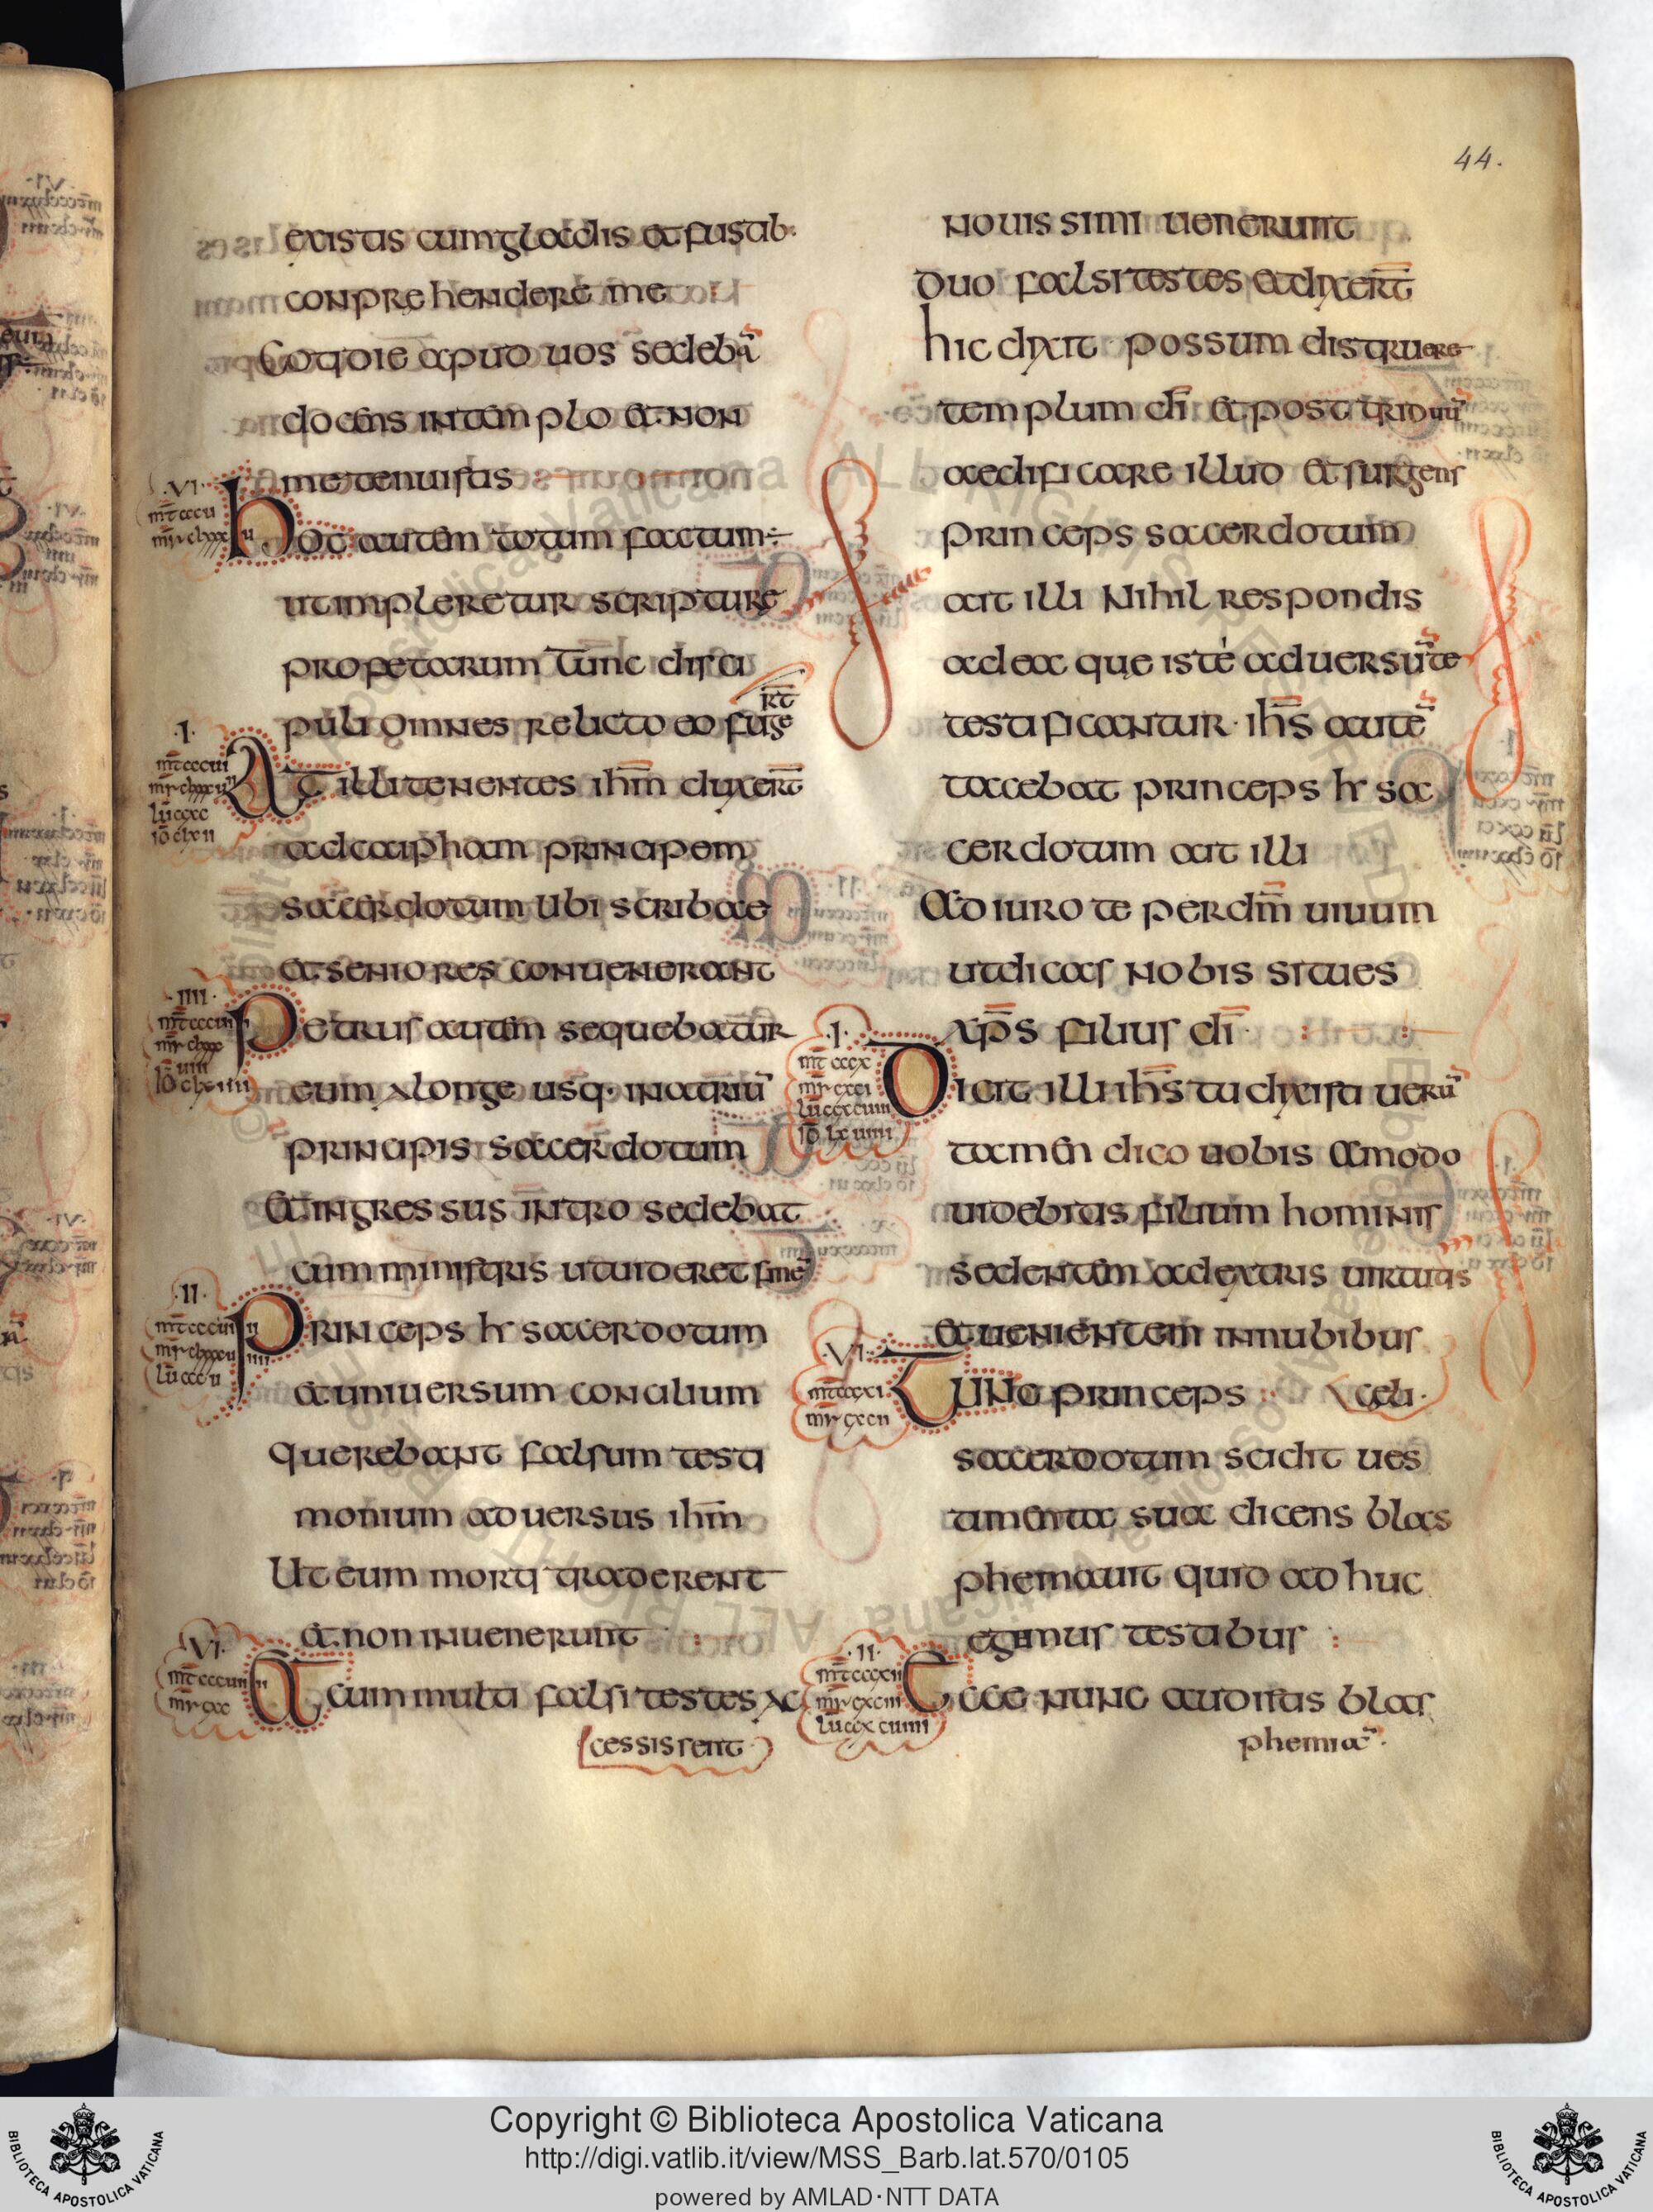 44.
existis cum gladis et fustib·
conprehendere me
Cotidie apud uos sedebā
docens in templo et non
me tenuistis
·VI·
mt̄ cccu
Hoc autem totum factum ÷
ut impleretur scripture
profetarum Tunc disci
puli omnes relicto eo fuge
rt̄
·I·
mt̄ cccui
lū ccxc
At illi tenentes ih̄m dixert̄
ad caipham principem
sacerdotum Ubi scribae
et seniores conuenerant
·IIII·
Petrus autem sequebatur
eum a longe usq· in atriū
principis sacerdotum
Et ingressus intro sedebat
cum ministris ut uideret finē
·II·
Princeps hr sacerdotum
et uniuersum concilium
querebant falsum testi
monium aduersus ih̄m
Ut eum morti traderent
et non inuenerunt
·VI·
Et cum multi falsi testes ac
cessissent
nouissimi uenerunt
duo falsi testes et dixert̄
hic dixit possum distruere
templum dī et post triduū
aedificare illud et surgens
princeps sacerdotum
ait illi Nihil respondis
ad ea que iste aduersū te
testificantur · ih̄s autē
taccebat princeps hr sa
cerdotum ait illi
Adiuro te per dm̄ uiuum
ut dicas nobis si tu es
xp̄s filius dī
·I·
mt̄ cccx
Dicit illi ih̄s tu dixisti uerū
tamen dico uobis amodo
uidebitis filium hominis
sedentem ad extris uirtutis
et uenientem in nubibus
celi·
·VI·
mt̄ cccxi
mr̄ cxcii
Tunc princeps
sacerdotum scidit ues
timenta sua dicens blas
phemauit quid adhuc
egemus testibus
·II·
mt̄ cccxii
mr̄ cxciii
Ecce nunc auditis blas
phemiā·
Copyright © Biblioteca Apostolica Vaticana
http://digi.vatlib.it/view/MSS_Barb.lat.570/0105
powered by AMLAD·NTT DATA
BIBLIOTECA APOSTOLICA VATICANA
BIBLIOTECA APOSTOLICA VATICANA